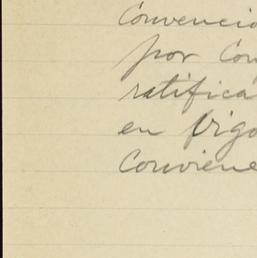 Convencio
por Con
ratifica
en vigo
Conviene